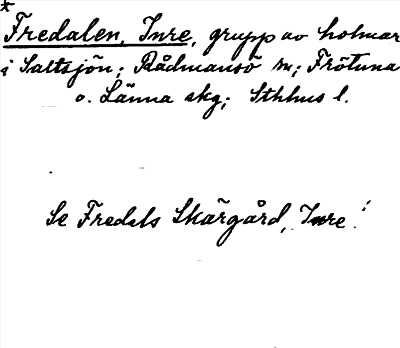 * Fredalen, Inre, grupp av holmar
i Saltsjön; Rådmansö sn; Frötuna
o. Länna skg; Sthlms l.
Se Fredels Skärgård, Inre!